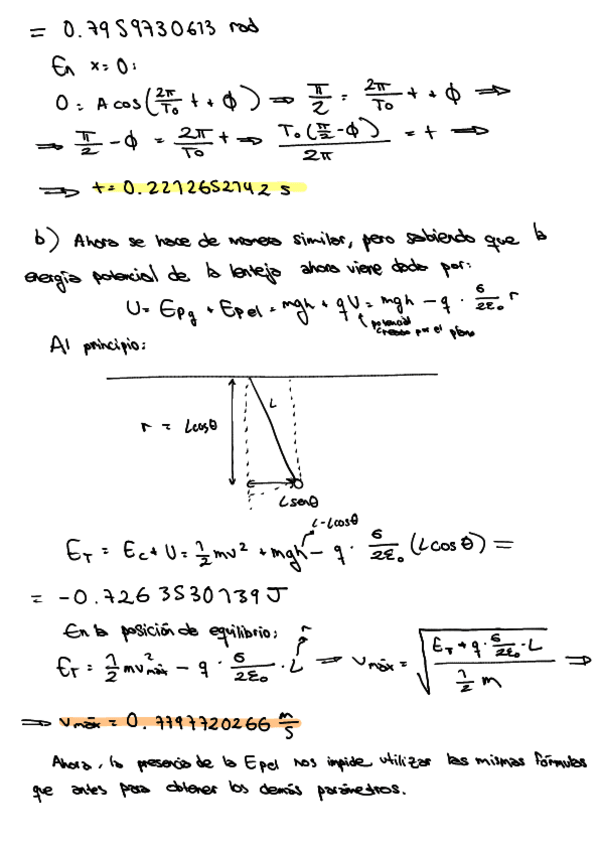 = 0.7959730613 rad
En x=0:
0 = A cos(2π/T₀ t + ϕ) ⇒ π/2 = 2π/T₀ t + ϕ ⇒
⇒ π/2 - ϕ = 2π/T₀ t ⇒ T₀(π/2 - ϕ)/2π = t ⇒
⇒ t = 0.2212652142 s
b) Ahora se hace de manera similar, pero sabiendo que la
energía potencial de la lenteja ahora viene dada por:
U = Epg + Epel = mgh + qV = mgh - q · σ/2ε₀ r
potencial creado por el plano
Al principio:
L
r = Lcosθ
Lsenθ
L-Lcosθ
E_T = Ec + U = 1/2 mv² + mgh - q · σ/2ε₀ (Lcosθ) =
= -0.7263530139 J
En la posición de equilibrio:
r
E_T = 1/2 mv²máx - q · σ/2ε₀ · L ⇒ vmáx = √((E_T + q · σ/2ε₀ · L)/(1/2 m)) ⇒
⇒ vmáx = 0.7797720266 m/s
Ahora, la presencia de la Epel nos impide utilizar las mismas fórmulas
que antes para obtener los demás parámetros.